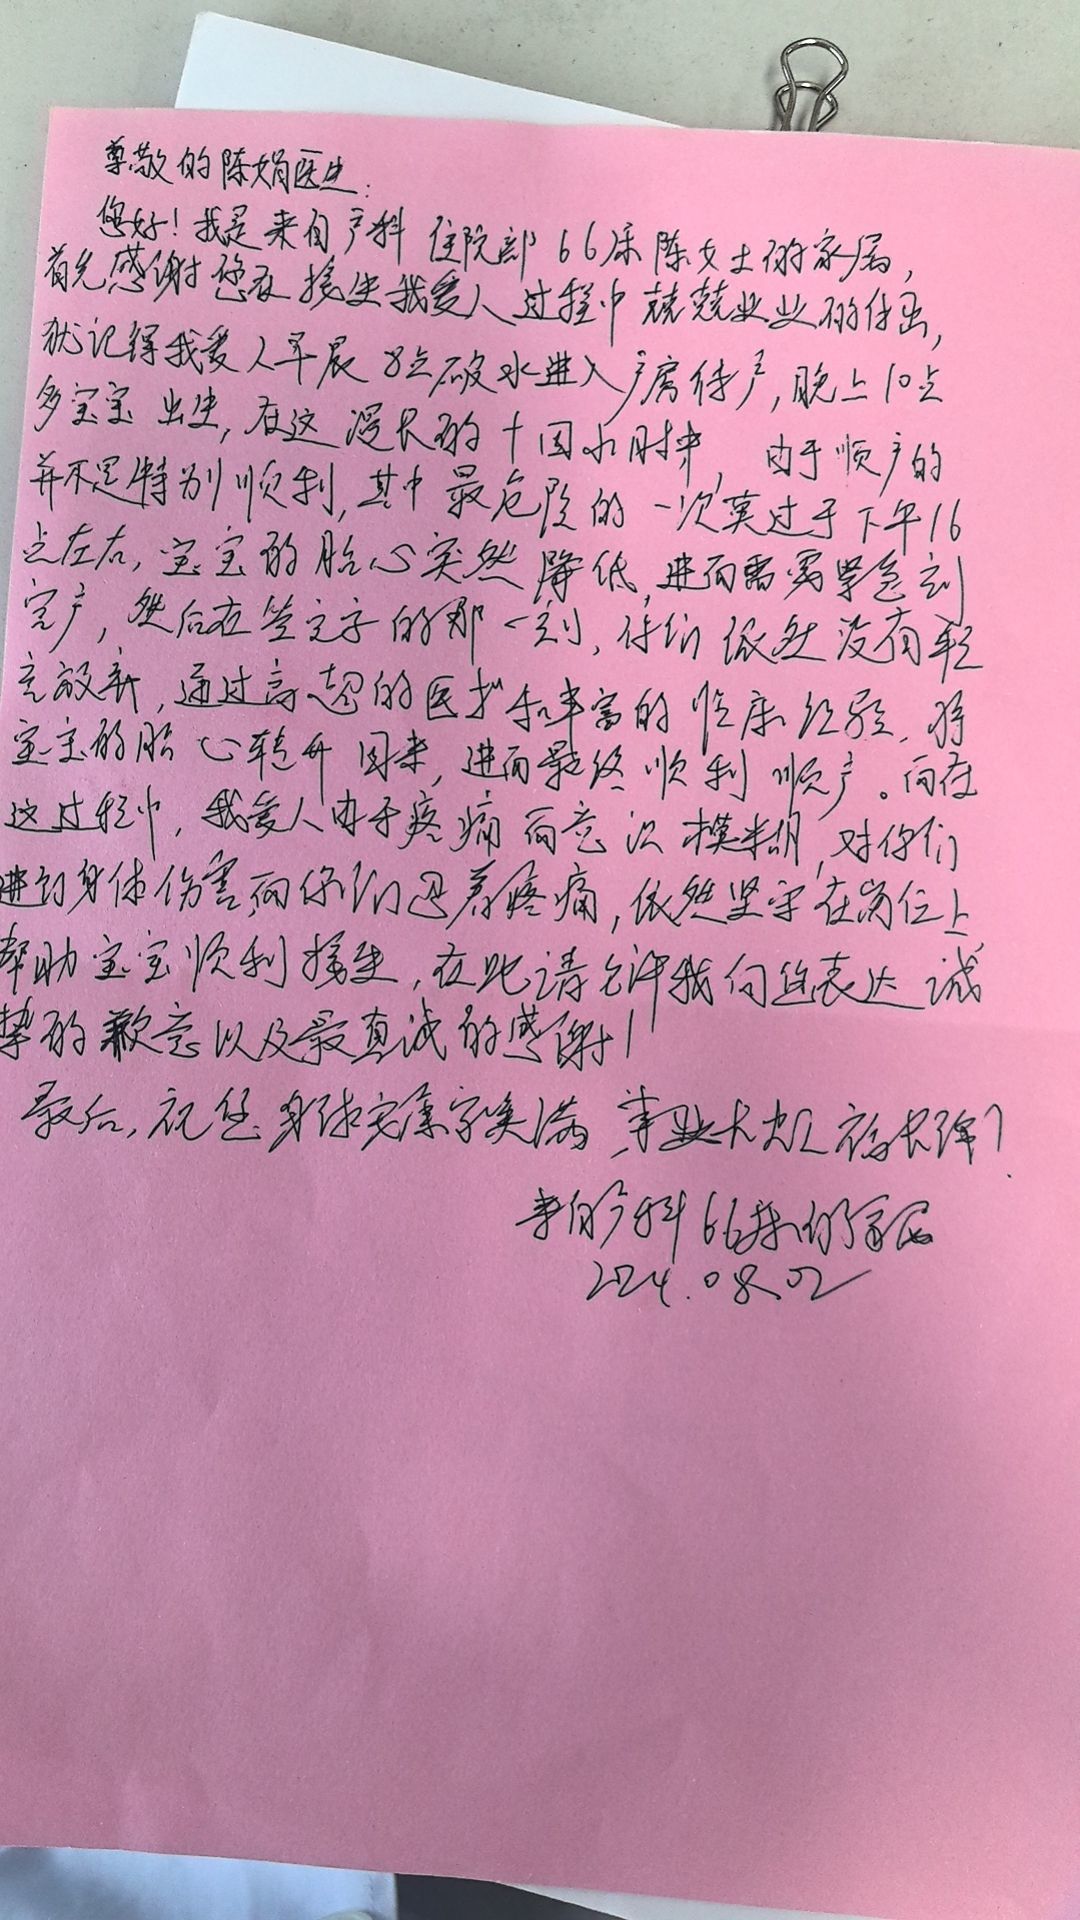 尊敬的陈娟医生:
您好!我是来自产科住院部66床陈女士的家属,
首先感谢您在接生我爱人过程中兢兢业业的付出,
犹记得我爱人早晨8点破水进入产房待产,晚上10点
多宝宝出生,在这漫长的十四小时来,由于顺产的
并不是特别顺利,其中最危险的一次莫过于下午16
点左右,宝宝的胎心突然降低,进而需要紧急剖
宫产,然后在签完字的那一刻,你们依然没有轻
言放弃,通过高超的医术和丰富的临床经验,将
宝宝的胎心转升回来,进而最终顺利顺产。而在
这过程中,我爱人由于疼痛而意识模糊,对你们
进行身体伤害,而你们忍着疼痛,依然坚守在岗位上,
帮助宝宝顺利接生,在此请允许我向您表达诚
挚的歉意以及最真诚的感谢!
最后,祝您身体安康家美满,事业大
来自产科66床的家属
2024.08.02